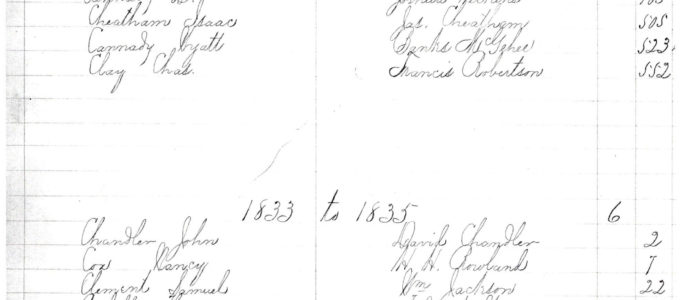 Cheatham Isaac Jas. Cheatham 505
Cannady Wyatt Banks McGehee 523
Clay Chas. Francis Robertson 552
1833 to 1835 6
Chandler John David Chandler 2
Cox Nancy H. H. Rowland 7
Clement Samuel Wm Jackson 22